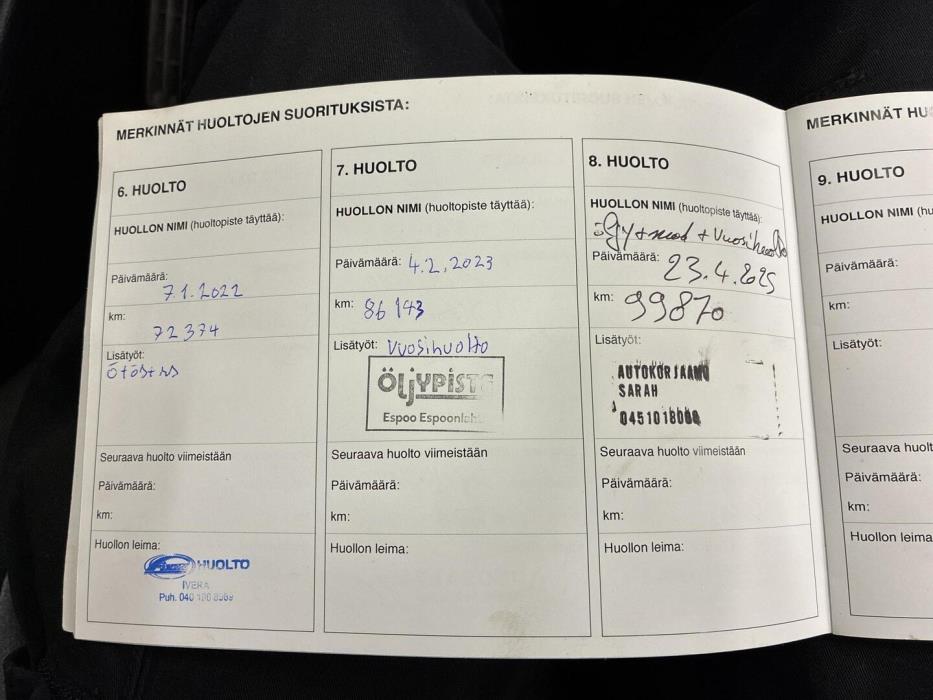 MERKINNÄT HUOLTOJEN SUORITUKSISTA:
6. HUOLTO
HUOLLON NIMI (huoltopiste täyttää):
Päivämäärä:
7.1.2022
km:
72 374
Lisätyöt:
Seuraava huolto viimeistään
Päivämäärä:
km:
Huollon leima:
HUOLTO
IVERA
Puh. 040
7. HUOLTO
HUOLLON NIMI (huoltopiste täyttää):
Päivämäärä: 4.2.2023
km: 86 143
Lisätyöt: Vuosihuolto
ÖLJYPISTE
Espoo
Seuraava huolto viimeistään
Päivämäärä:
km:
Huollon leima:
8. HUOLTO
HUOLLON NIMI (huoltopiste täyttää):
+ Vuosihuolto
Päivämäärä: 23.4.2025
km: 99870
Lisätyöt:
AUTOKORJAAMO
SARAH
Seuraava huolto viimeistään
Päivämäärä:
km:
Huollon leima:
MERKINNÄT HU
9. HUOLTO
HUOLLON NIMI (hu
Päivämäärä:
km:
Lisätyöt:
Seuraava huolt
Päivämäärä:
km:
Huollon leima